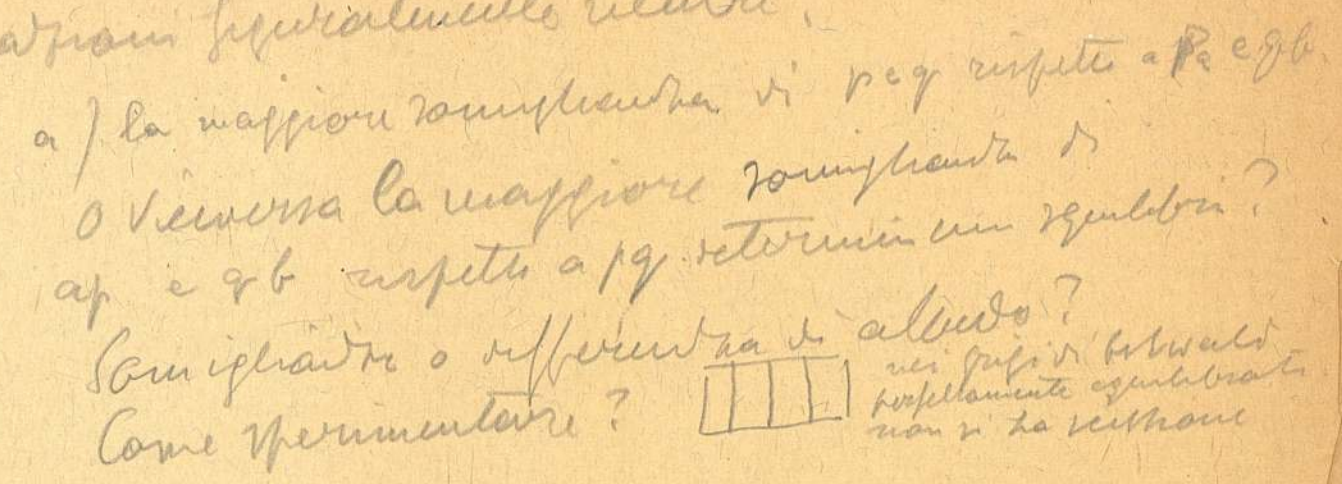 figuralmente
a) la maggiore somiglianza di p e q rispetto a Pa e qb
o viceversa la maggiore somiglianza di
ap e qb rispetto a pq determina uno squilibrio?
Somiglianza o differenza di albedo?
Come sperimentare?
nei grigi di Ostwald
perfettamente equilibrati
non si ha scissione